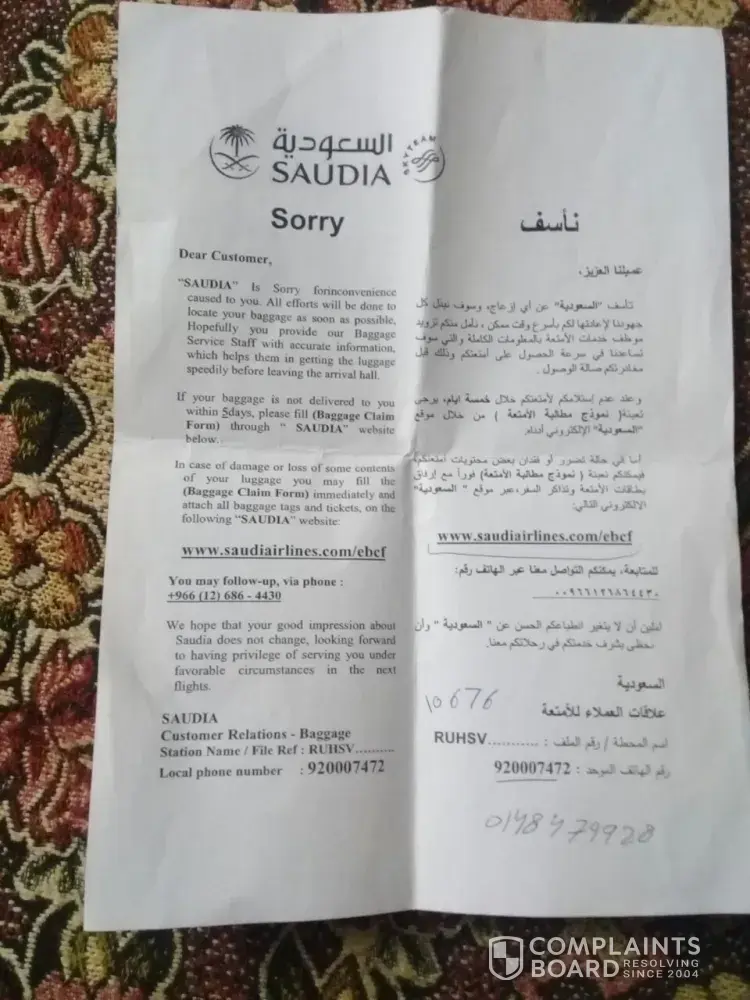 السعودية
SAUDIA
SKYTEAM
Sorry
Dear Customer,
"SAUDIA" Is Sorry forinconvenience
caused to you. All efforts will be done to
locate your baggage as soon as possible,
Hopefully you provide our Baggage
Service Staff with accurate information,
which helps them in getting the luggage
speedily before leaving the arrival hall.
If your baggage is not delivered to you
within 5days, please fill (Baggage Claim
Form) through " SAUDIA" website
below..
In case of damage or loss of some contents
of your luggage you may fill the
(Baggage Claim Form) immediately and
attach all baggage tags and tickets, on the
following "SAUDIA" website:
www.saudiairlines.com/ebcf
You may follow-up, via phone :
+966 (12) 686 - 4430
We hope that your good impression about
Saudia does not change, looking forward
to having privilege of serving you under
favorable circumstances in the next
flights.
SAUDIA
Customer Relations - Baggage
Station Name / File Ref : RUHSV..........
Local phone number : 920007472
نأسف
عميلنا العزيز،
تأسف "السعودية" عن أي إزعاج، وسوف نبذل كل
جهودنا لإعادتها لكم بأسرع وقت ممكن ، نأمل منكم تزويد
موظف خدمات الأمتعة بالمعلومات الكاملة والتي سوف
تساعدنا في سرعة الحصول على أمتعتكم وذلك قبل
مغادرتكم صالة الوصول .
وعند عدم إستلامكم لأمتعتكم خلال خمسة ايام، يرجى
تعبئة( نموذج مطالبة الأمتعة ) من خلال موقع
"السعودية" الإلكتروني أدناه.
أما في حالة تضرر أو فقدان بعض محتويات أمتعتكم
فيمكنكم تعبئة ( نموذج مطالبة الأمتعة) فوراً مع إرفاق
بطاقات الأمتعة وتذاكر السفر،عبر موقع " السعودية"
الالكتروني التالي:
www.saudiairlines.com/ebcf
للمتابعة، يمكنكم التواصل معنا عبر الهاتف رقم:
٠٠٩٦٦١٢٦٨٦٤٤٣٠
آملين أن لا يتغير انطباعكم الحسن عن " السعودية " وأن
نحظى بشرف خدمتكم في رحلاتكم معنا.
السعودية
علاقات العملاء للأمتعة
10676
اسم المحطة / رقم الملف : RUHSV...........
رقم الهاتف الموحد : 920007472
0148479928
COMPLAINTS
BOARD RESOLVING SINCE 2004